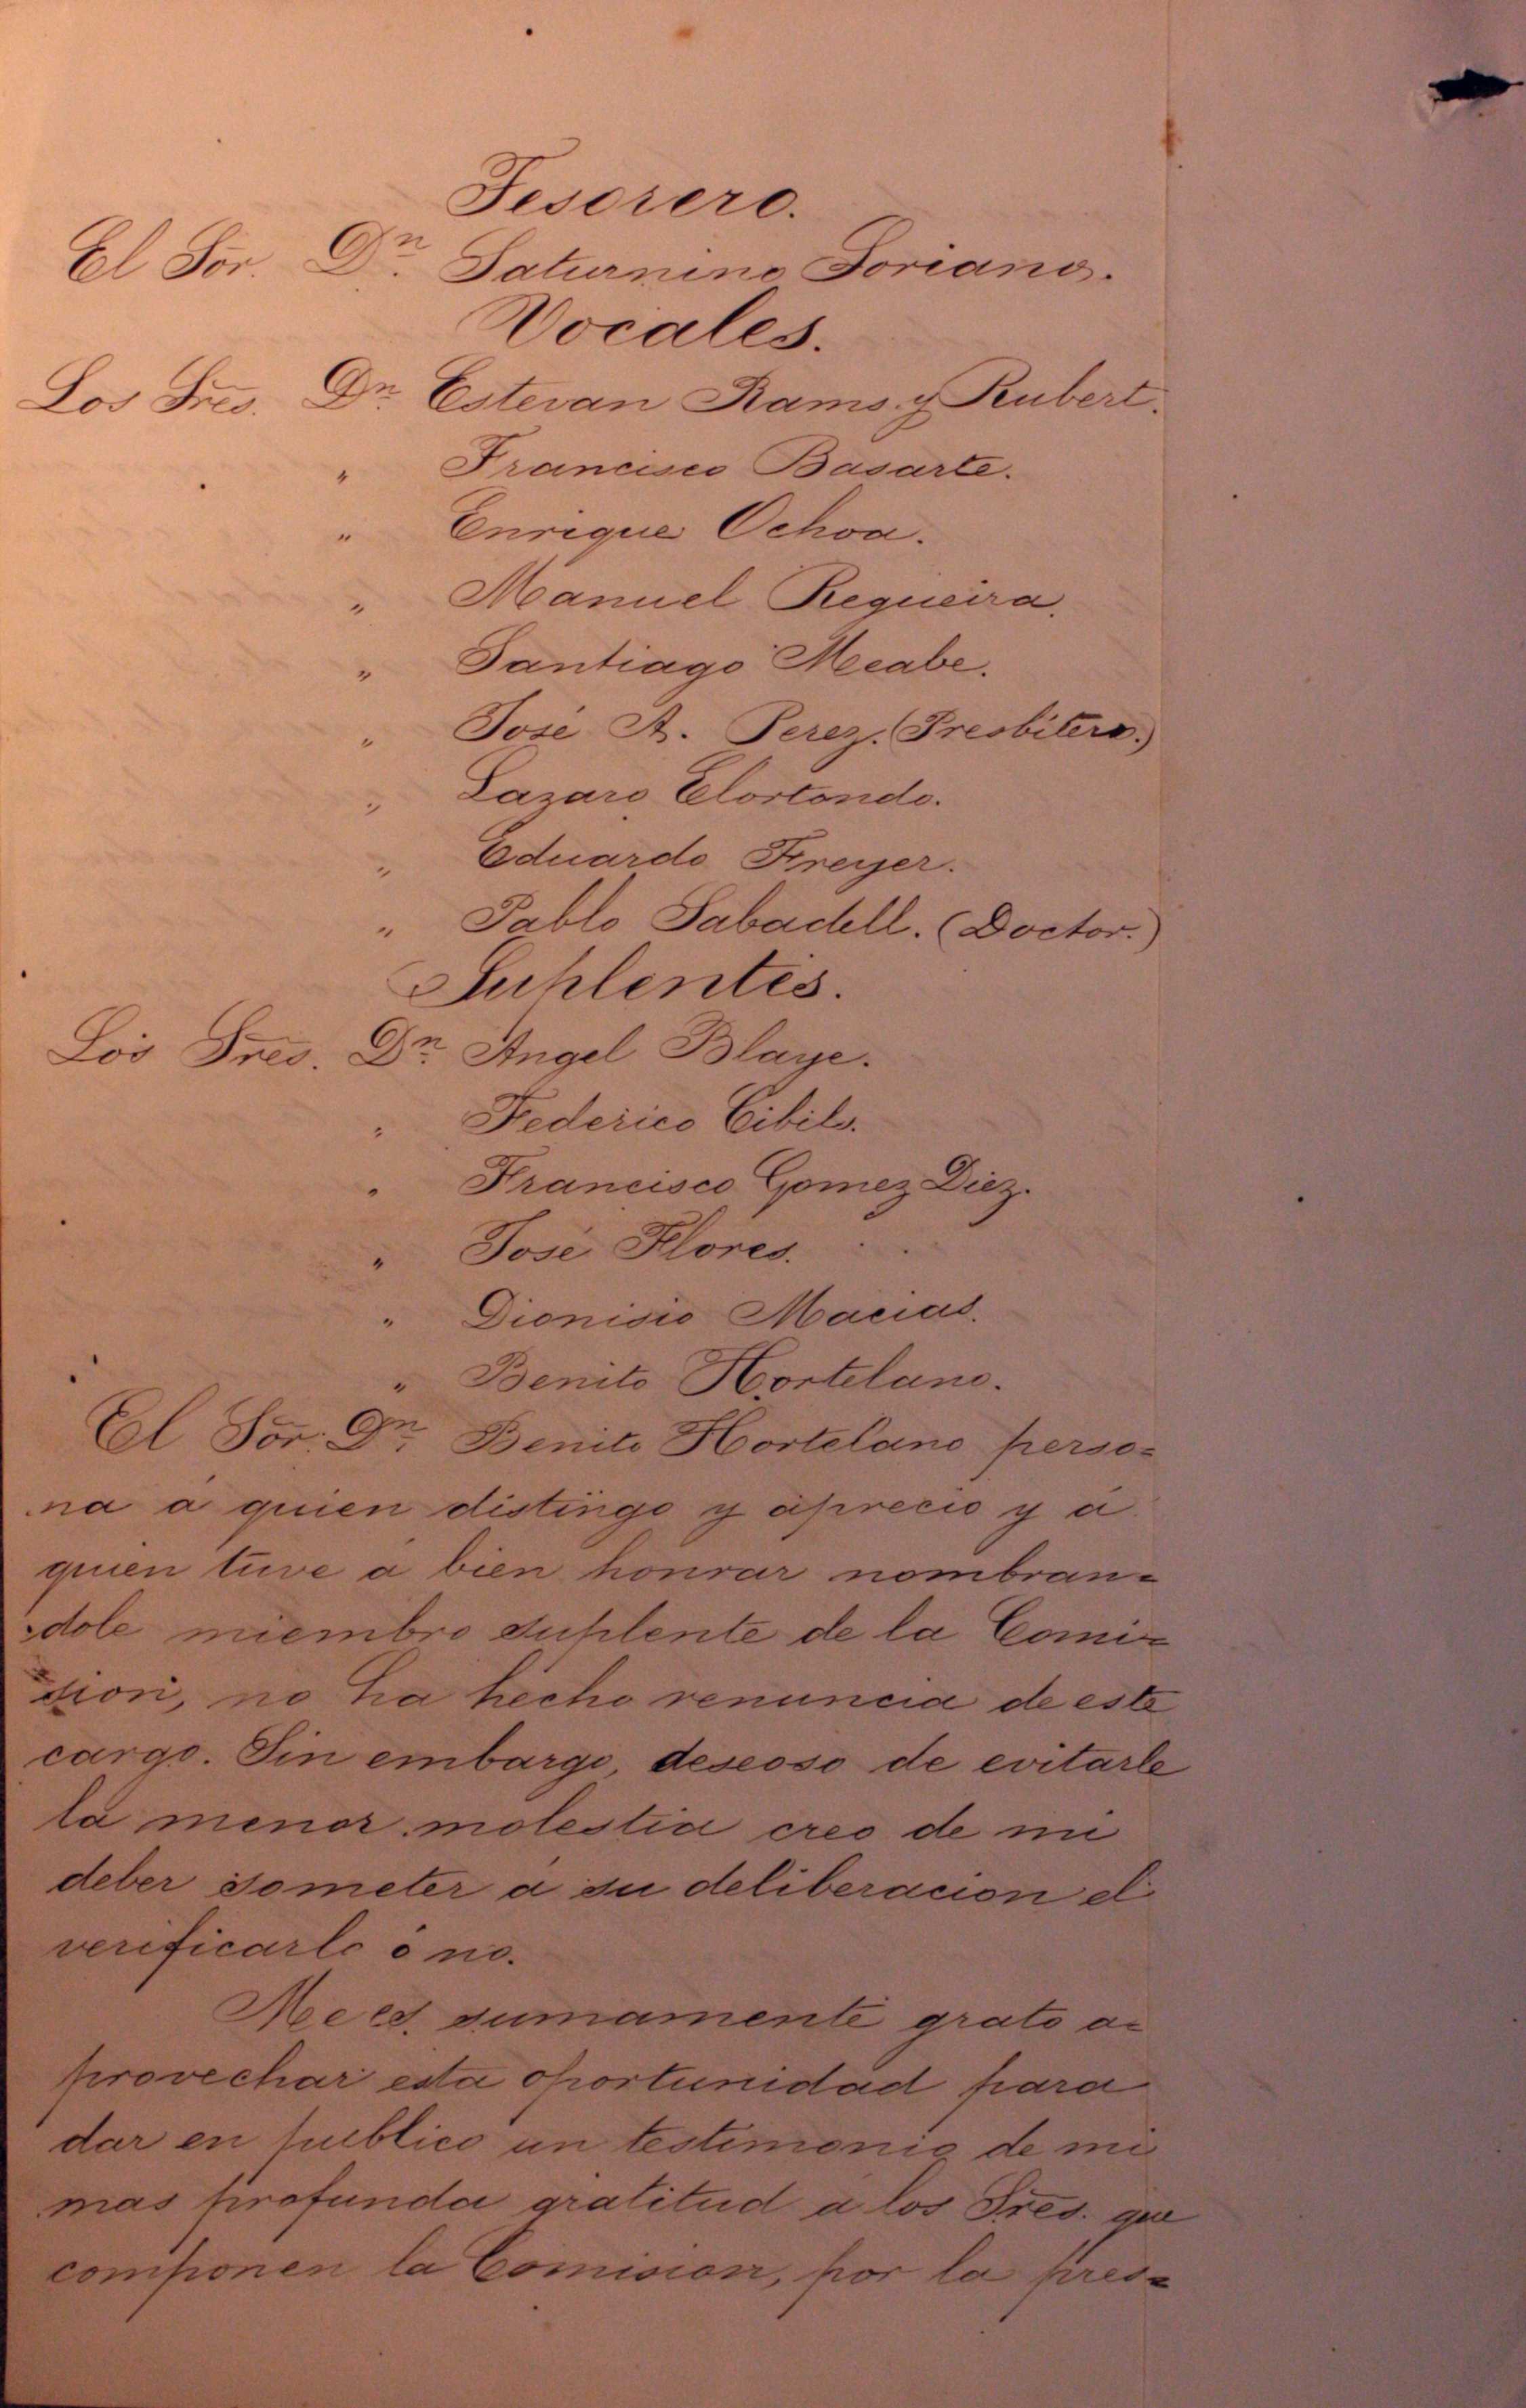 Tesorero.
El Sōr. Dn. Saturnino Soriano.
Vocales.
Los Srēs. Dn. Estevan Rams y Rubert.
" Francisco Basarte.
" Enrique Ochoa.
" Manuel Regueira.
" Santiago Meabe.
" José A. Perez. (Presbitero.)
" Lazaro Elortondo.
" Eduardo Freyer.
" Pablo Sabadell. (Doctor.)
Suplentes.
Los Srēs. Dn. Angel Blaye.
" Federico Cibils.
" Francisco Gomez Diez.
" José Flores.
" Dionisio Macias.
" Benito Hortelano.
El Sōr. Dn. Benito Hortelano perso=
na á quien distingo y aprecio y á
quien tuve á bien honrar nombran=
dole miembro suplente de la Comi=
sion, no ha hecho renuncia de este
cargo. Sin embargo, deseoso de evitarle
la menor molestia creo de mi
deber someter á su deliberacion el
verificarlo ó no.
Me es sumamente grato a=
provechar esta oportunidad para
dar en publico un testimonio de mi
mas profunda gratitud á los Srēs. que
componen la Comision, por la pres=